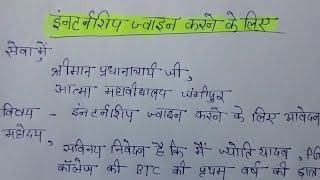 इंनटर्नशिप ज्वाइन करने के लिए
सेवा में
श्रीमान प्रधानाचार्य जी,
आत्मा महावीद्यालय जंगीपुर
विषय - इंनटर्नशिप ज्वाइन करने के लिए आवेदन
महोदय,
सविनय निवेदन है कि मैं ज्योति यादव, PG
कॉलेज की BTC की प्रथम वर्ष की छात्र